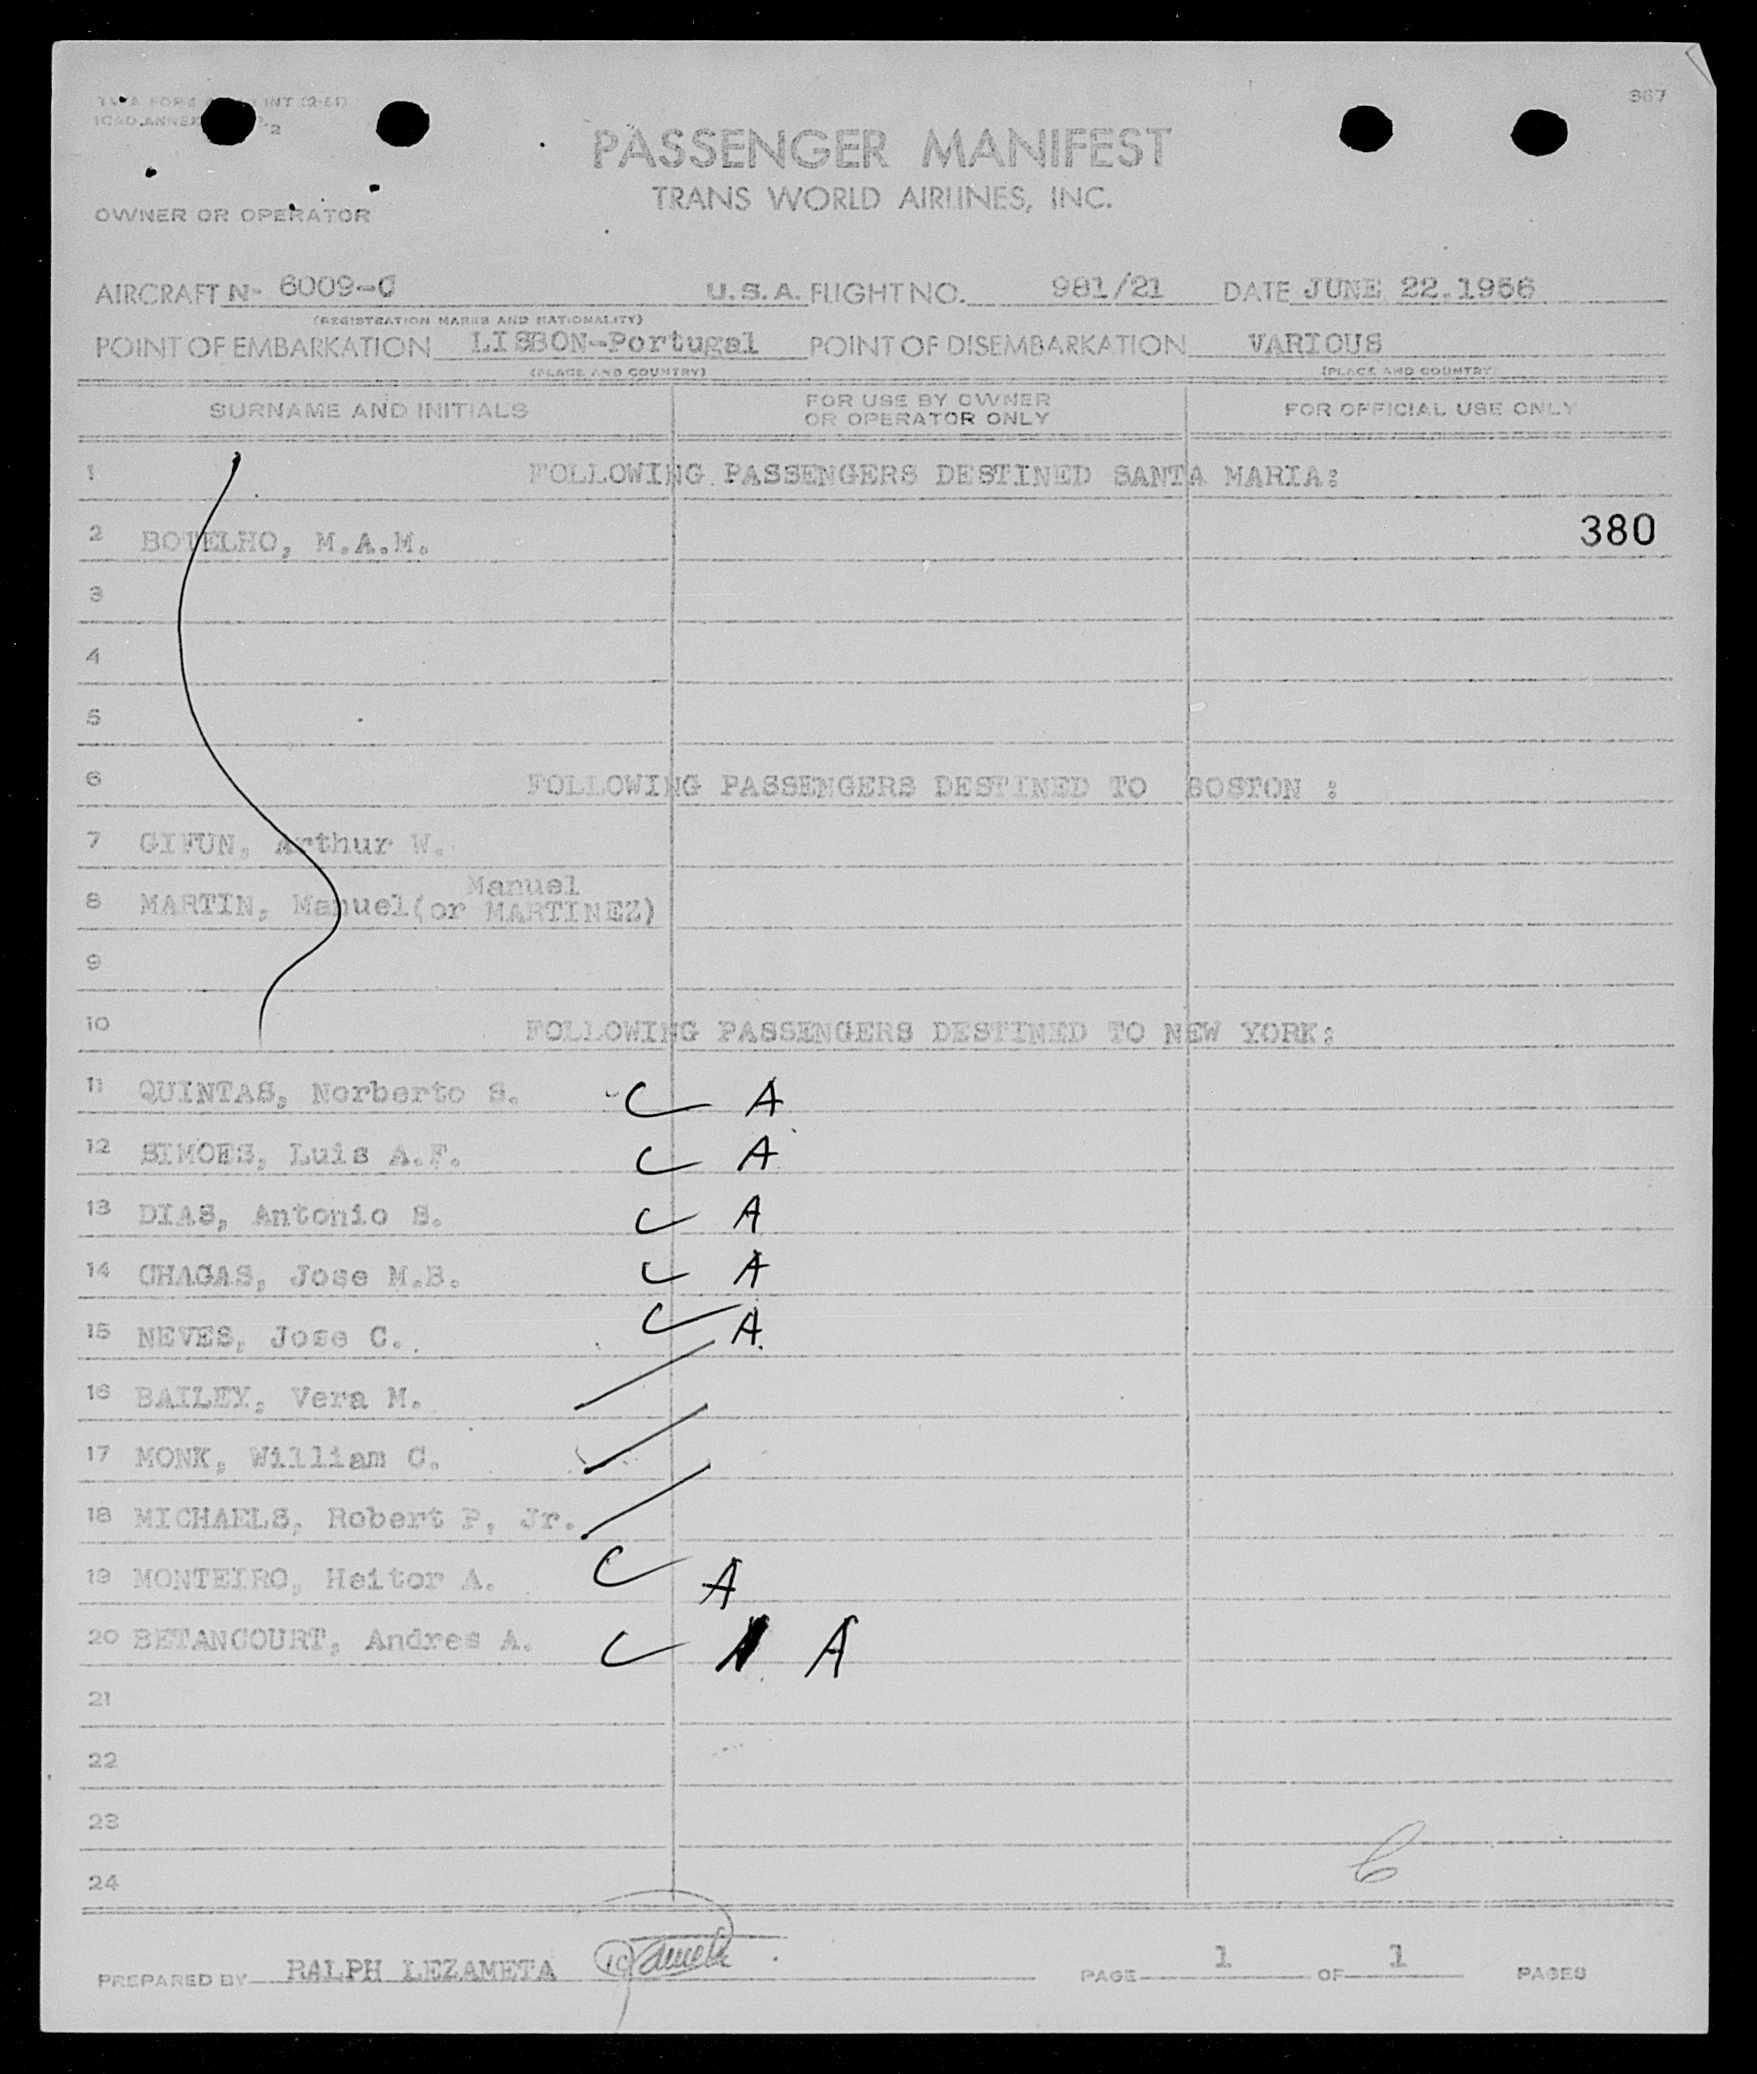 367
PASSENGER MANIFEST
TRANS WORLD AIRLINES, INC.
OWNER OR OPERATOR
AIRCRAFT N- 6009-C U.S.A. FLIGHT NO. 981/21 DATE JUNE 22.1956
(REGISTRATION MARKS AND NATIONALITY)
POINT OF EMBARKATION LISBON-Portugal POINT OF DISEMBARKATION VARIOUS
(PLACE AND COUNTRY) (PLACE AND COUNTRY)
SURNAME AND INITIALS FOR USE BY OWNER OR OPERATOR ONLY FOR OFFICIAL USE ONLY
1 FOLLOWING PASSENGERS DESTINED SANTA MARIA:
2 BOTELHO, M.A.M. 380
3
4
5
6 FOLLOWING PASSENGERS DESTINED TO BOSTON :
7 GIFUN, Arthur W.
Manuel
8 MARTIN, Manuel(or MARTINEZ)
9
10 FOLLOWING PASSENGERS DESTINED TO NEW YORK:
11 QUINTAS, Norberto S. A
12 SIMOES, Luis A.F. A
13 DIAS, Antonio S. A
14 CHAGAS, Jose M.B. A
15 NEVES, Jose C. A
16 BAILEY, Vera M.
17 MONK, William C.
18 MICHAELS, Robert P, Jr.
19 MONTEIRO, Heitor A. A
20 BETANCOURT, Andres A. A
21
22
23
24
PREPARED BY RALPH LEZAMETA PAGE 1 OF 1 PAGES